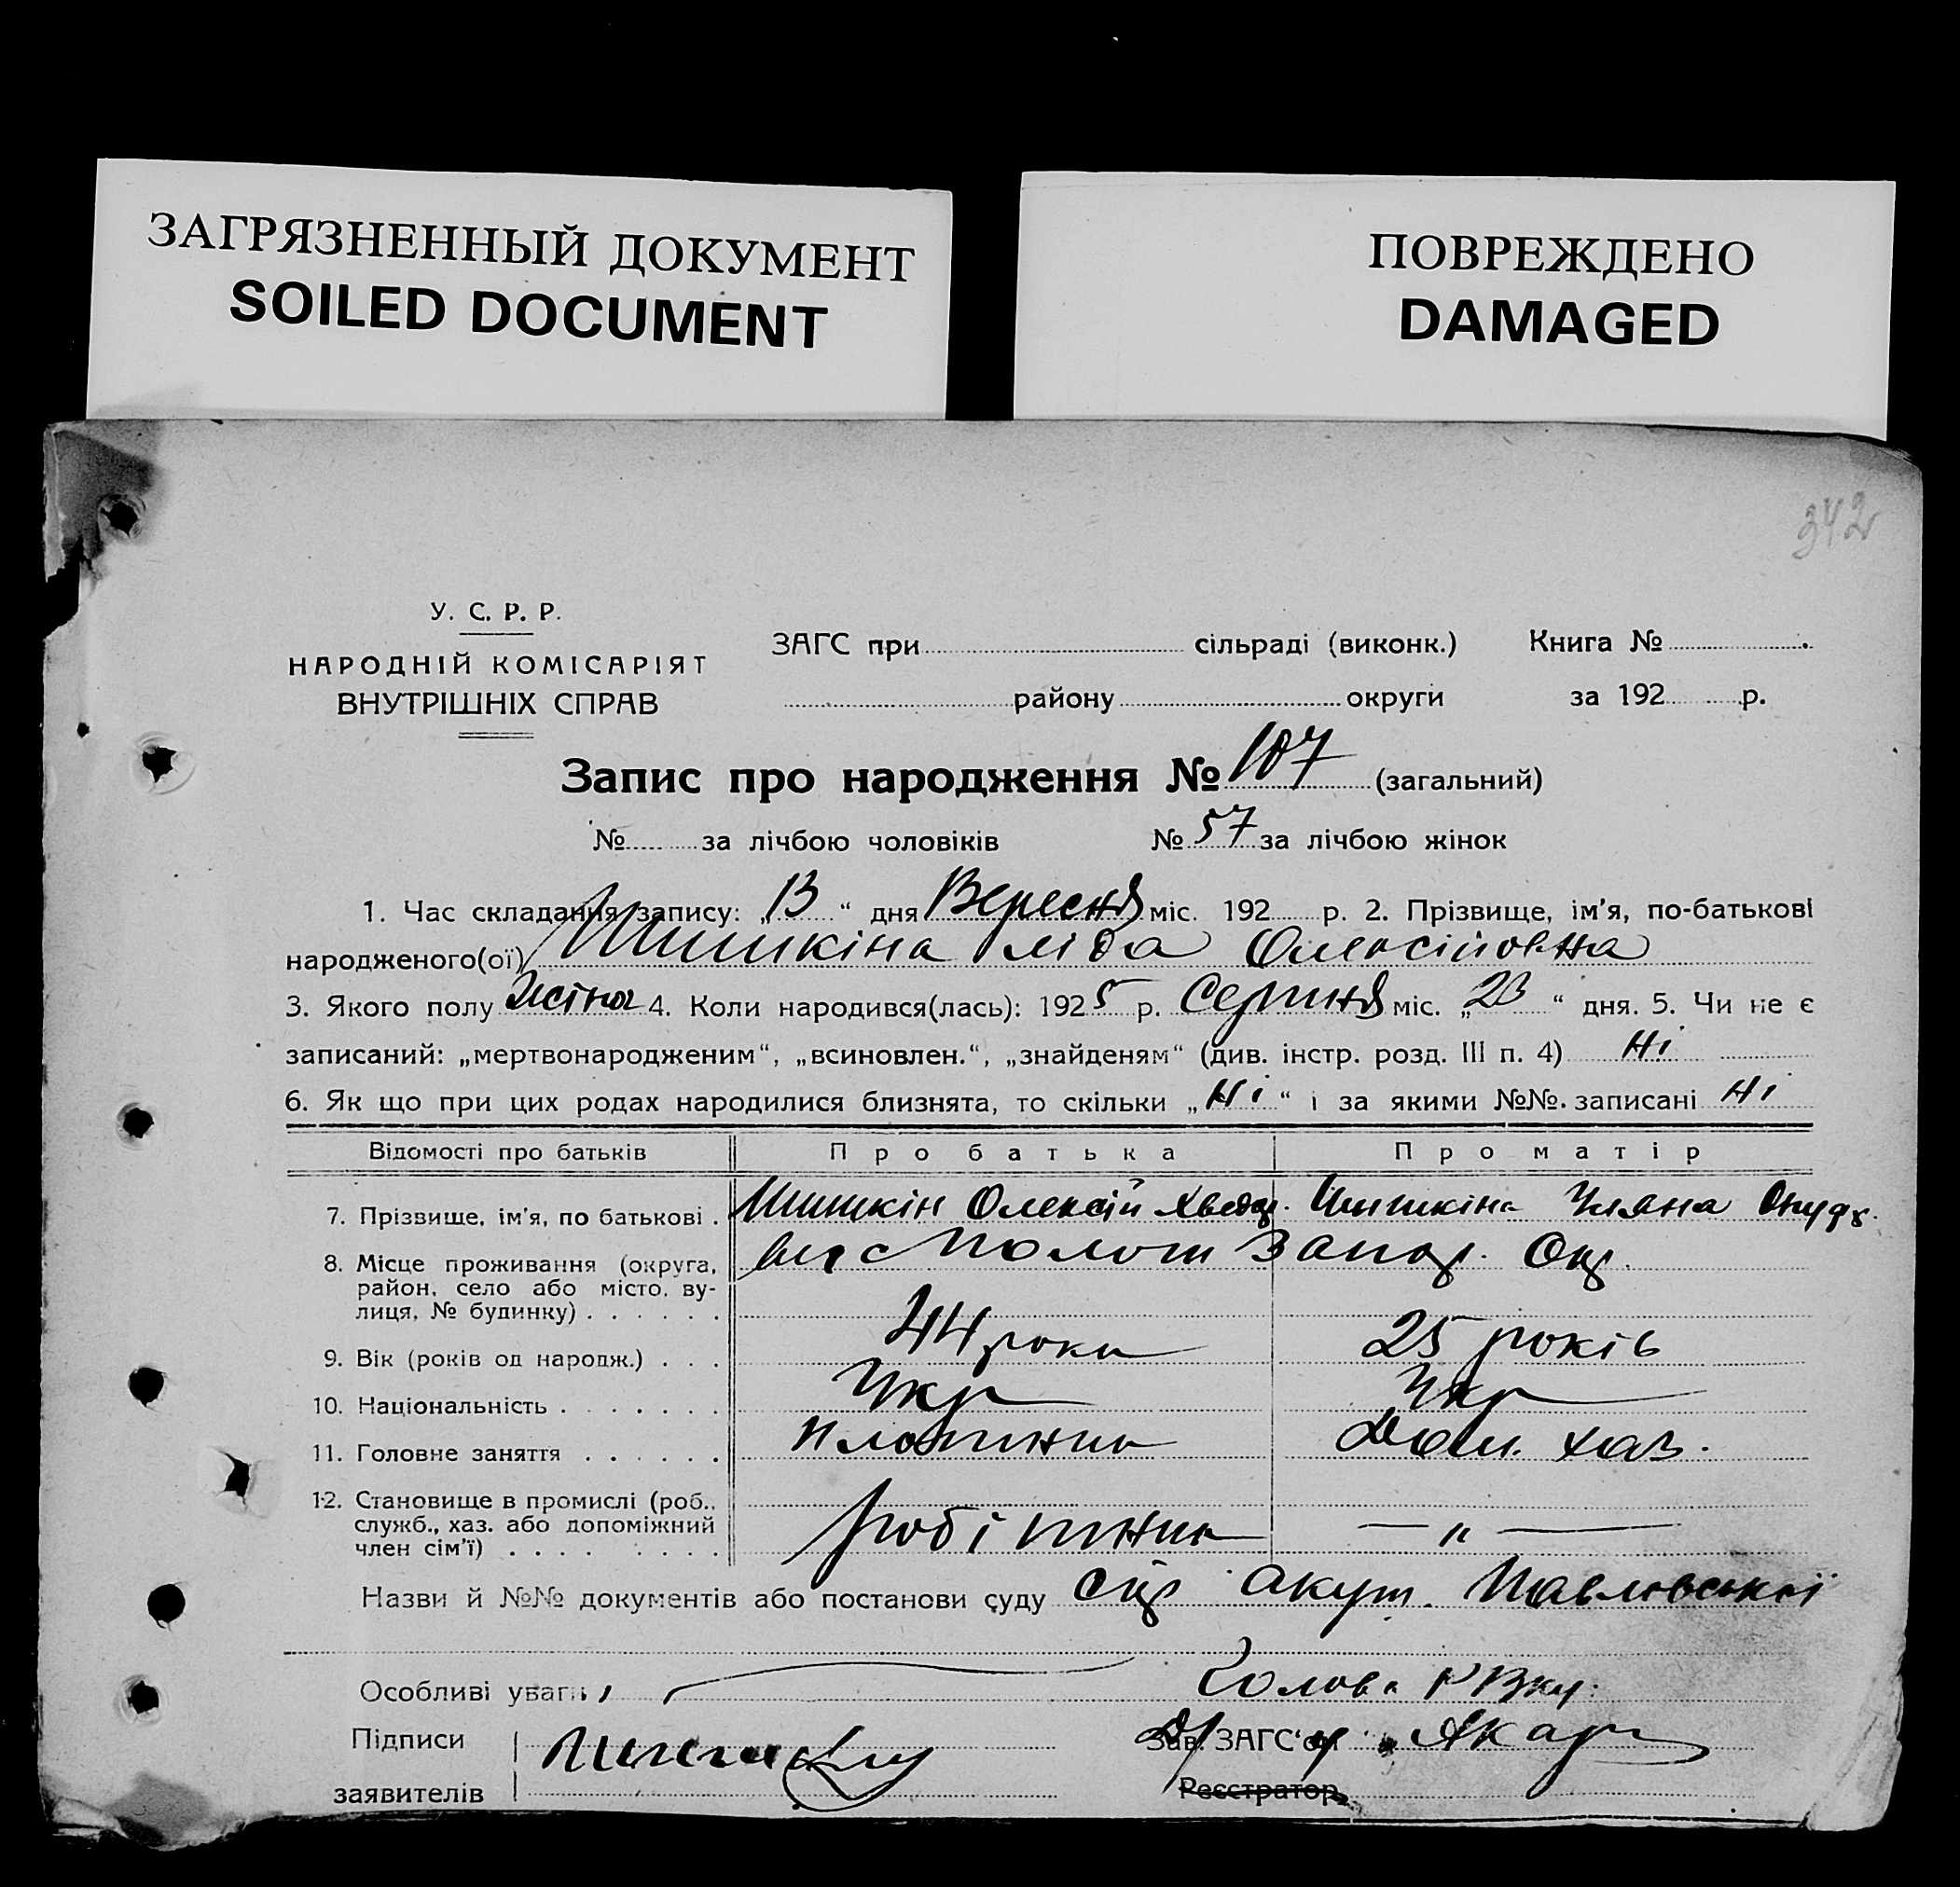 ЗАГРЯЗНЕННЫЙ ДОКУМЕНТ
SOILED DOCUMENT
ПОВРЕЖДЕНО
DAMAGED
342
У. С. Р. Р.
НАРОДНІЙ КОМІСАРІЯТ
ВНУТРІШНІХ СПРАВ
ЗАГС при сільраді (виконк.) Книга №
району округи за 192 р.
Запис про народження № 107 (загальний)
№ за лічбою чоловіків № 57 за лічбою жінок
1. Час складання запису: „13“ дня Вересня міс. 192 р. 2. Прізвище, ім'я, по-батькові
народженого(ої) Шишкіна Ліда Олексійовна
3. Якого полу Жіноч 4. Коли народився(лась): 1925 р. Серпня міс. „23“ дня. 5. Чи не є
записаний: „мертвонародженим“, „всиновлен.“, „знайденям“ (див. інстр. розд. III п. 4) Ні
6. Як що при цих родах народилися близнята, то скільки „Ні“ і за якими №№ записані Ні
Відомості про батьків Про батька Про матір
7. Прізвище, ім'я, по батькові . Шишкін Олексій Хведор. Шишкіна Уляна
8. Місце проживання (округа, Молот Запор. Окр.
район, село або місто, ву-
лиця, № будинку) . . . . . .
9. Вік (років од народж.) . . . 44 роки 25 років
10. Національність . . . . . . . Укр Укр
11. Головне заняття . . . . . . Плотник Дом. хаз.
12. Становище в промислі (роб.,
служб., хаз. або допоміжний
член сім'ї) . . . . . . . . робітник — " —
Назви й №№ документів або постанови суду акуш. Павловської
Особливі уваги Голова РВК
Підписи Зав. ЗАГС'ом
заявителів Реєстратор